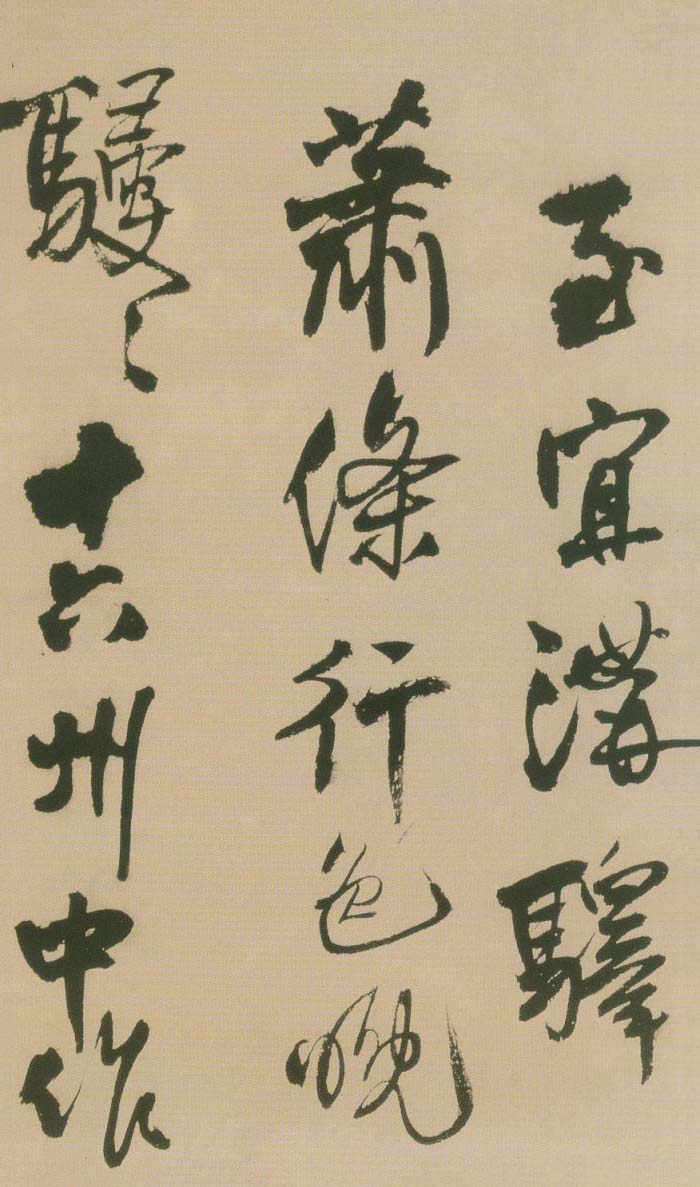 至宜溝驛
蕭條行色晚
駸々十六州中作